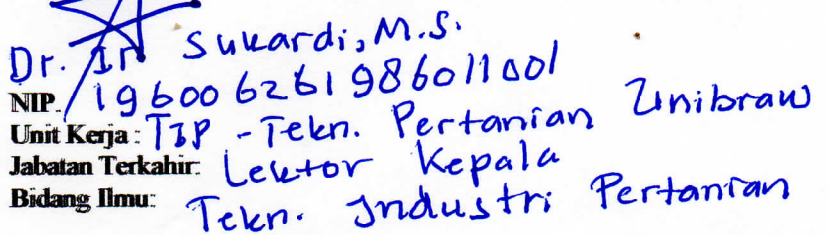 Dr. Ir Sukardi, M.S.
NIP. 196006261986011001
Unit Kerja : TIP - Tekn. Pertanian Unibraw
Jabatan Terkahir: Lektor Kepala
Bidang Ilmu: Tekn. Industri Pertanian